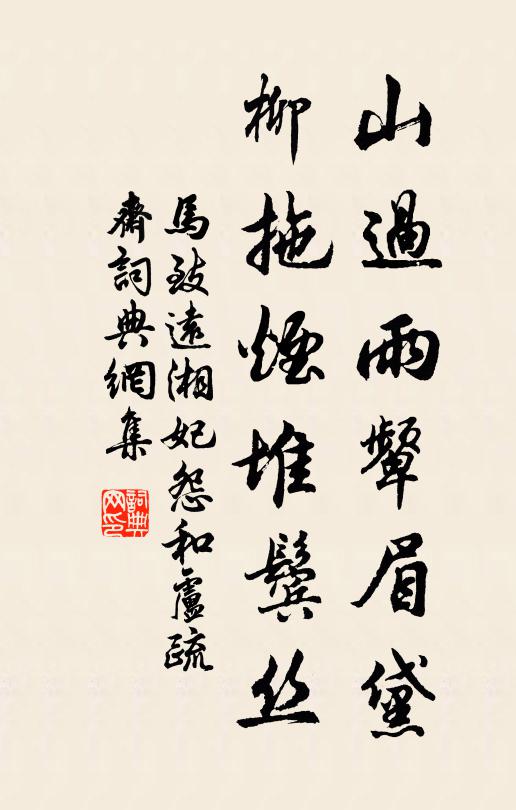 山過雨顰眉黛
柳拖煙堆鬓丝
馬致遠湘妃怨和盧疏
齋詞典網集
詞典網印